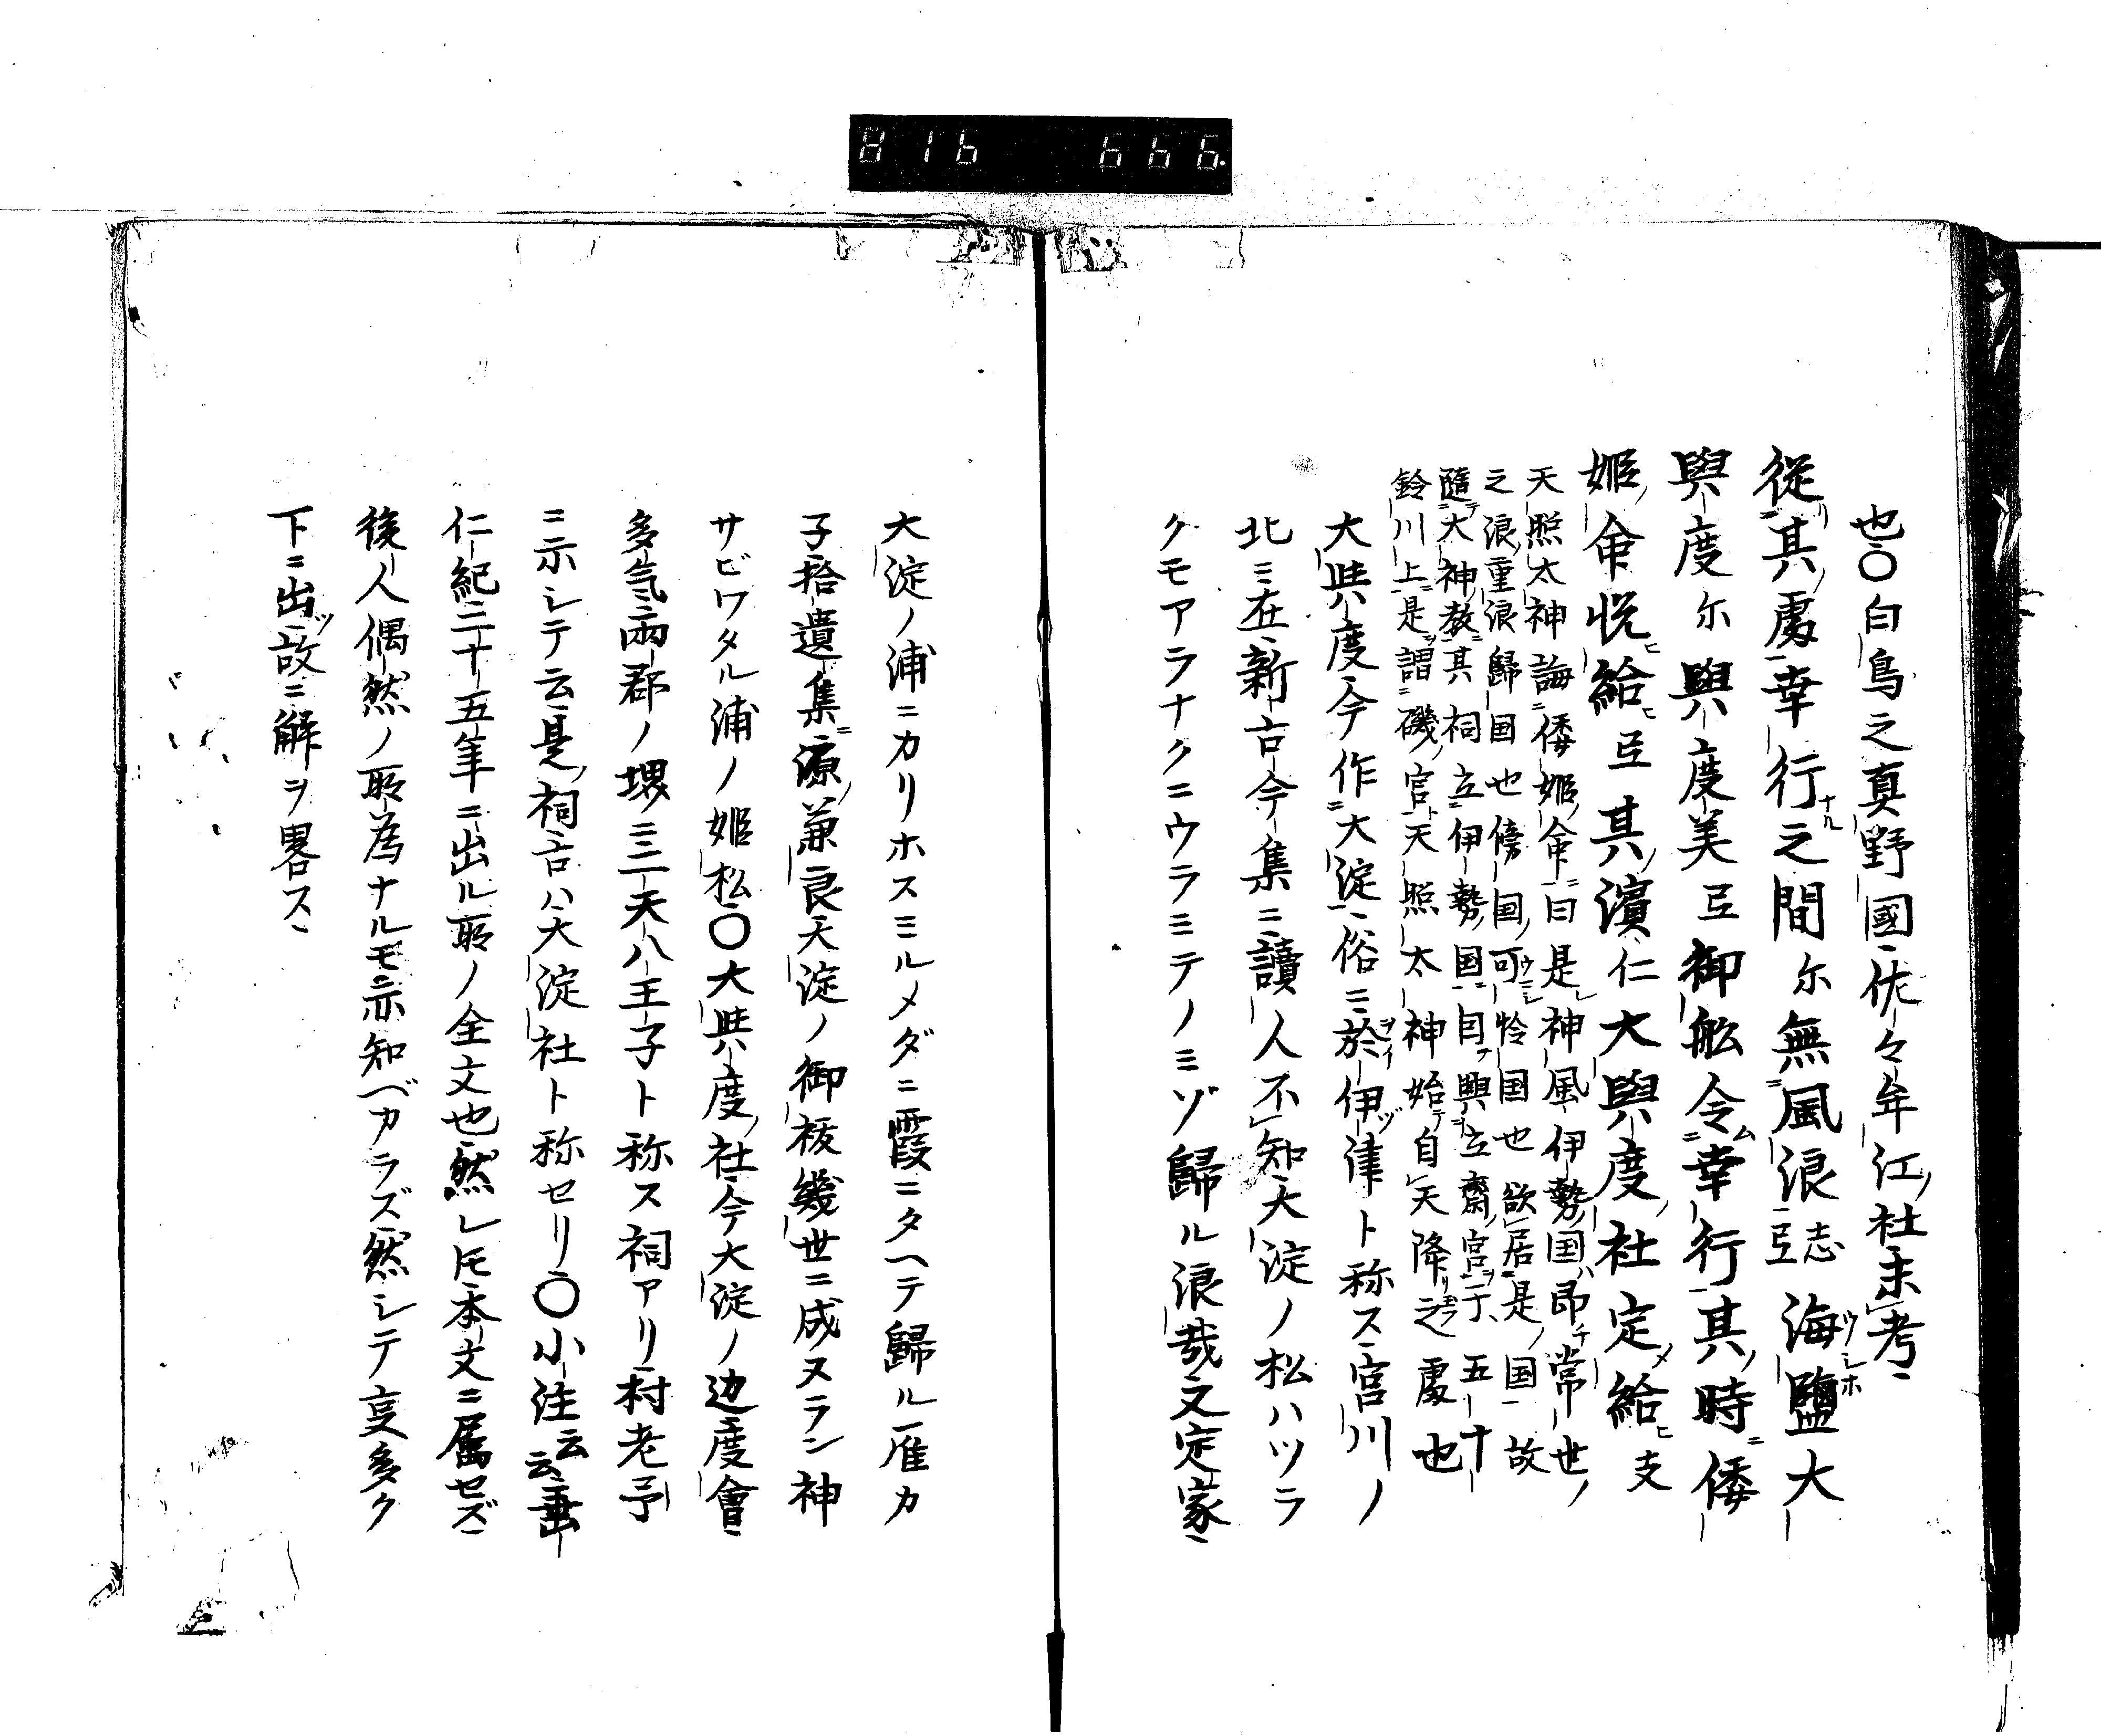 816 666.
也〇白鳥之真野國佐々牟江社未考
從其處幸行之間尓無風浪志弖海鹽大
與度尓與度美弖御舩令幸行其時倭
姬命悦給弖其濱仁大與度社定給支
天照太神誨倭姬命曰是神風伊勢国即常世
之浪重浪歸国也傍国可怜国也欲居是国故
隨大神敎其祠立伊勢国因興立齋宮于五十
鈴川上是謂磯宮天照太神始自天降之處也
大與度今作大淀俗ニ於伊津ト称ス宮川ノ
北ニ在新古今集ニ讀人不知大淀ノ松ハツラ
クモアラナクニウラミテノミゾ歸ル浪哉又定家
大淀ノ浦ニカリホスミルメダニ霞ニタヘテ歸ル雁カ
子拾遺集源兼良大淀ノ御祓幾世ニ成ヌラン神
サビワタル浦ノ姬松〇大與度社今大淀ノ辺度會
多気両郡ノ堺ニ三天八王子ト称ス祠アリ村老予
ニ示シテ云是祠古ハ大淀社ト称セリ〇小注云云垂
仁紀二十五年ニ出ル所ノ全文也然レ𪜈本文ニ属セズ
後人偶然ノ所為ナルモ亦知ベカラズ然シテ㕝多ク
下ニ出故ニ解ヲ畧ス